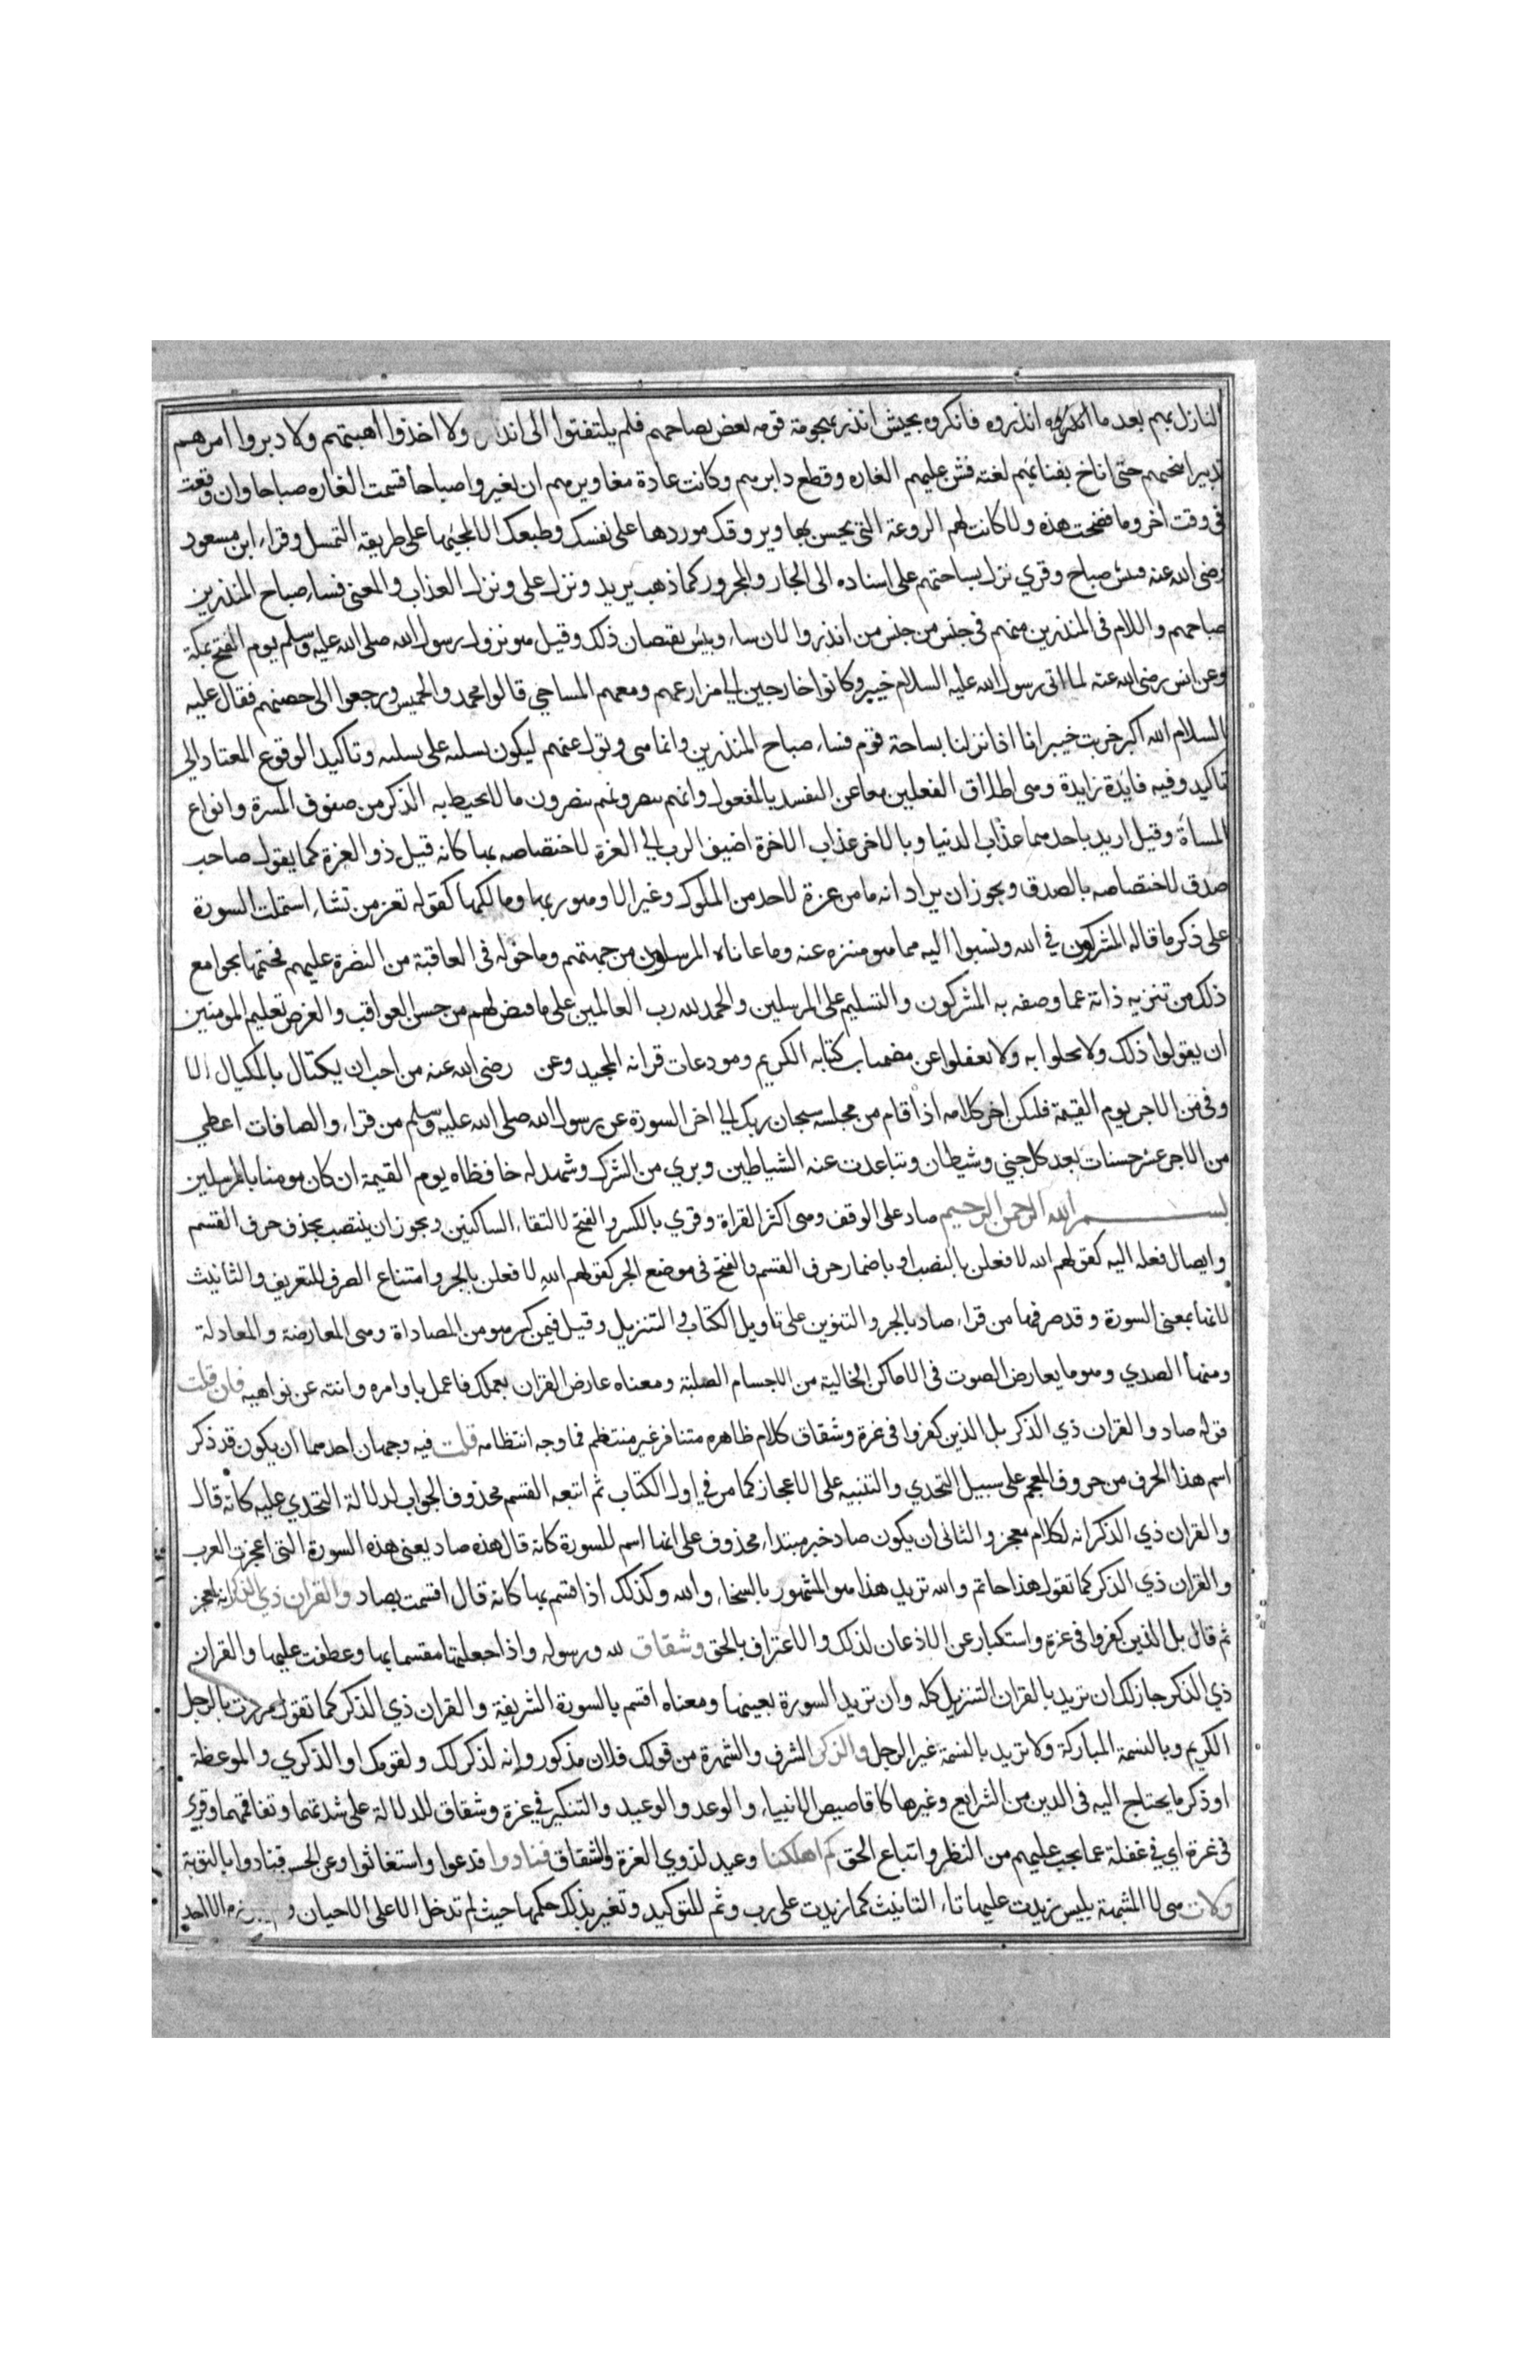 النازل بهم بعد ما انذروه فانكروه بجيش انذر بهجومه قومه بعض نصاحهم فلم يلتفتوا الى انذاره ولا اخذوا اهبتهم ولا دبروا امرهم
تدبيرا ينجيهم حتى اناخ بفنائهم بغتة فشن عليهم الغارة وقطع دابرهم وكانت عادة مغاويرهم ان يغيروا صباحا فسميت الغارة صباحا وان وقعت
في وقت اخر وما فصحت هذه ولا كانت لهم الروعة التي يحسن بها ويروقك موردها على نفسك وطبعك الا لمجيئها على طريقة التمثيل وقراء ابن مسعود
رضى الله عنه فبئس صباح وقري نزل بساحتهم على اسناده الى الجار والمجرور كما ذهب بزيد ونزل على ونزل العذاب والمعنى فساء صباح المنذرين
صباحهم واللام فى المنذرين مبهم في جنس من انذروا لان ساء وبئس يقتضيان ذلك وقيل هو نزول رسول الله صلى الله عليه وسلم يوم الفتح بمكة
وعن انس رضى الله عنه لما اتى رسول الله عليه السلام خيبر وكانوا خارجين الي مزارعهم ومعهم المساحي قالوا محمد والخميس ورجعوا الى حصنهم فقال عليه
السلام الله اكبر خربت خيبر انا اذا نزلنا بساحة قوم فساء صباح المنذرين وانما ثنى وتول عنهم ليكون تسلية على تسلية وتاكيد الوقوع المعتاد الي
تاكيد وفيه فايدة زايدة وهى اطلاق الفعلين معا عن التقييد بالمفعول وانهم يبصر وانهم يبصرون ما لا يحيط به الذكر من صنوف المسرة وانواع
المساة وقيل اريد باحدهما عذاب الدنيا وبالاخر عذاب الاخرة اضيف الرب الي العزة لاختصاصه بها كانه قيل ذو العزة كما يقول صاحب
صدق لاختصاصه بالصدق ويجوز ان يراد انه ما من عزة لاحد من الملوك وغيرهم الا وهو ربها ومالكها كقوله تعز من تشاء اشتملت السورة
على ذكر ما قاله المشركون في الله ونسبوا اليه مما هو منزه عنه وما عاناه المرسلون من جهتهم وما خوله فى العاقبة من النصرة عليهم فختمها بجوامع
ذلك من تنزيه ذاته عما وصفه به المشركون والتسليم على المرسلين والحمد لله رب العالمين على ما قيض لهم من حسن العواقب والغرض تعليم المومنين
ان يقولوا ذلك ولا يخلوا به ولا يغفلوا عن مضمنات كتابه الكريم ومودعات قرانه المجيد وعن رضى الله عنه من احب ان يكتال بالمكيال الا
وفى من الاجر يوم القيمة فليكن اخر كلامه اذا قام من مجلسه سبحان ربك الي اخر السورة عن رسول الله صلى الله عليه وسلم من قراء والصافات اعطي
من الاجر عشر حسنات بعدد كل جني وشيطان وتباعدت عنه الشياطين وبري من الشرك وشهد له حافظاه يوم القيمة ان كان مومنا بالمرسلين
بسم الله الرحمن الرحيم صاد على الوقف وهى اكثر القراة وقري بالكسر والفتح لالتقاء الساكنين ويجوز ان ينتصب بحذف حرف القسم
وايصال فعله اليه كقولهم الله لافعلن بالنصب او باضمار حرف القسم والفتح في موضع الجر كقولهم الله لافعلن بالجر وامتناع الصرف للتعريف والتانيث
لانها بمعنى السورة وقد صرفها من قراء صاد بالجر والتنوين على تاويل الكتاب والتنزيل وقيل فيمن كسر هو من المصاداة وهى المعارضة والمعادلة
ومنها الصدي وهو ما يعارض الصوت فى الاماكن الخالية من الاجسام الصلبة ومعناه عارض القران بعملك فاعمل باوامره وانته عن نواهيه فان قلت
قوله صاد والقران ذي الذكر بل الذين كفروا فى عزة وشقاق كلام ظاهره متنافر غير منتظم فما وجه انتظامه قلت فيه وجهان احدهما ان يكون قد ذكر
اسم هذا الحرف من حروف المعجم على سبيل التحدي والتنبيه على الاعجاز كما مر في اول الكتاب ثم اتبعه القسم محذوف الجواب لدلالة التحدي عليه كانه قال
والقران ذي الذكر انه لكلام معجز والثانى ان يكون صاد خبر مبتداء محذوف على انها اسم للسورة كانه قال هذه صاد يعنى هذه السورة التى اعجزت العرب
والقران ذي الذكر كما تقول هذا حاتم والله تريد هذا هو المشهور بالسخاء والله وكذلك اذا قسم بها كانه قال اقسمت بصاد والقران ذي الذكر انه لمعجز
ثم قال بل الذين كفروا فى عزة واستكبار عن الاذعان لذلك والاعتراف بالحق وشقاق لله ورسوله واذا جعلتها مقسما بها وعطفت عليها والقران
ذي الذكر جاز لك ان تريد بالقران التنزيل كله وان تريد السورة بعينها ومعناه اقسم بالسورة الشريفة والقران ذي الذكر كما تقول مررت بالرجل
الكريم وبالنسمة المباركة ولا تريد بالنسمة غير الرجل والذكر الشرف والشهرة من قولك فلان مذكور وانه لذكر لك ولقومك او الذكري والموعظة
او ذكر ما يحتاج اليه فى الدين من الشرايع وغيرها كاقاصيص الانبياء والوعد والوعيد والتنكير في عزة وشقاق للدلالة على شدتهما وتفاقمهما وقري
فى غرة اي في غفلة عما يجب عليهم من النظر واتباع الحق كم اهلكنا وعيد لذوي العزة والشقاق فنادوا فدعوا واستغاثوا وعن الحسن فنادوا بالتوبة
ولات هى لا المشبهة بليس زيدت عليها تاء التانيث كما زيدت على رب وثم للتوكيد وتغير بذلك حكمها حيث لم تدخل الا على الاحيان